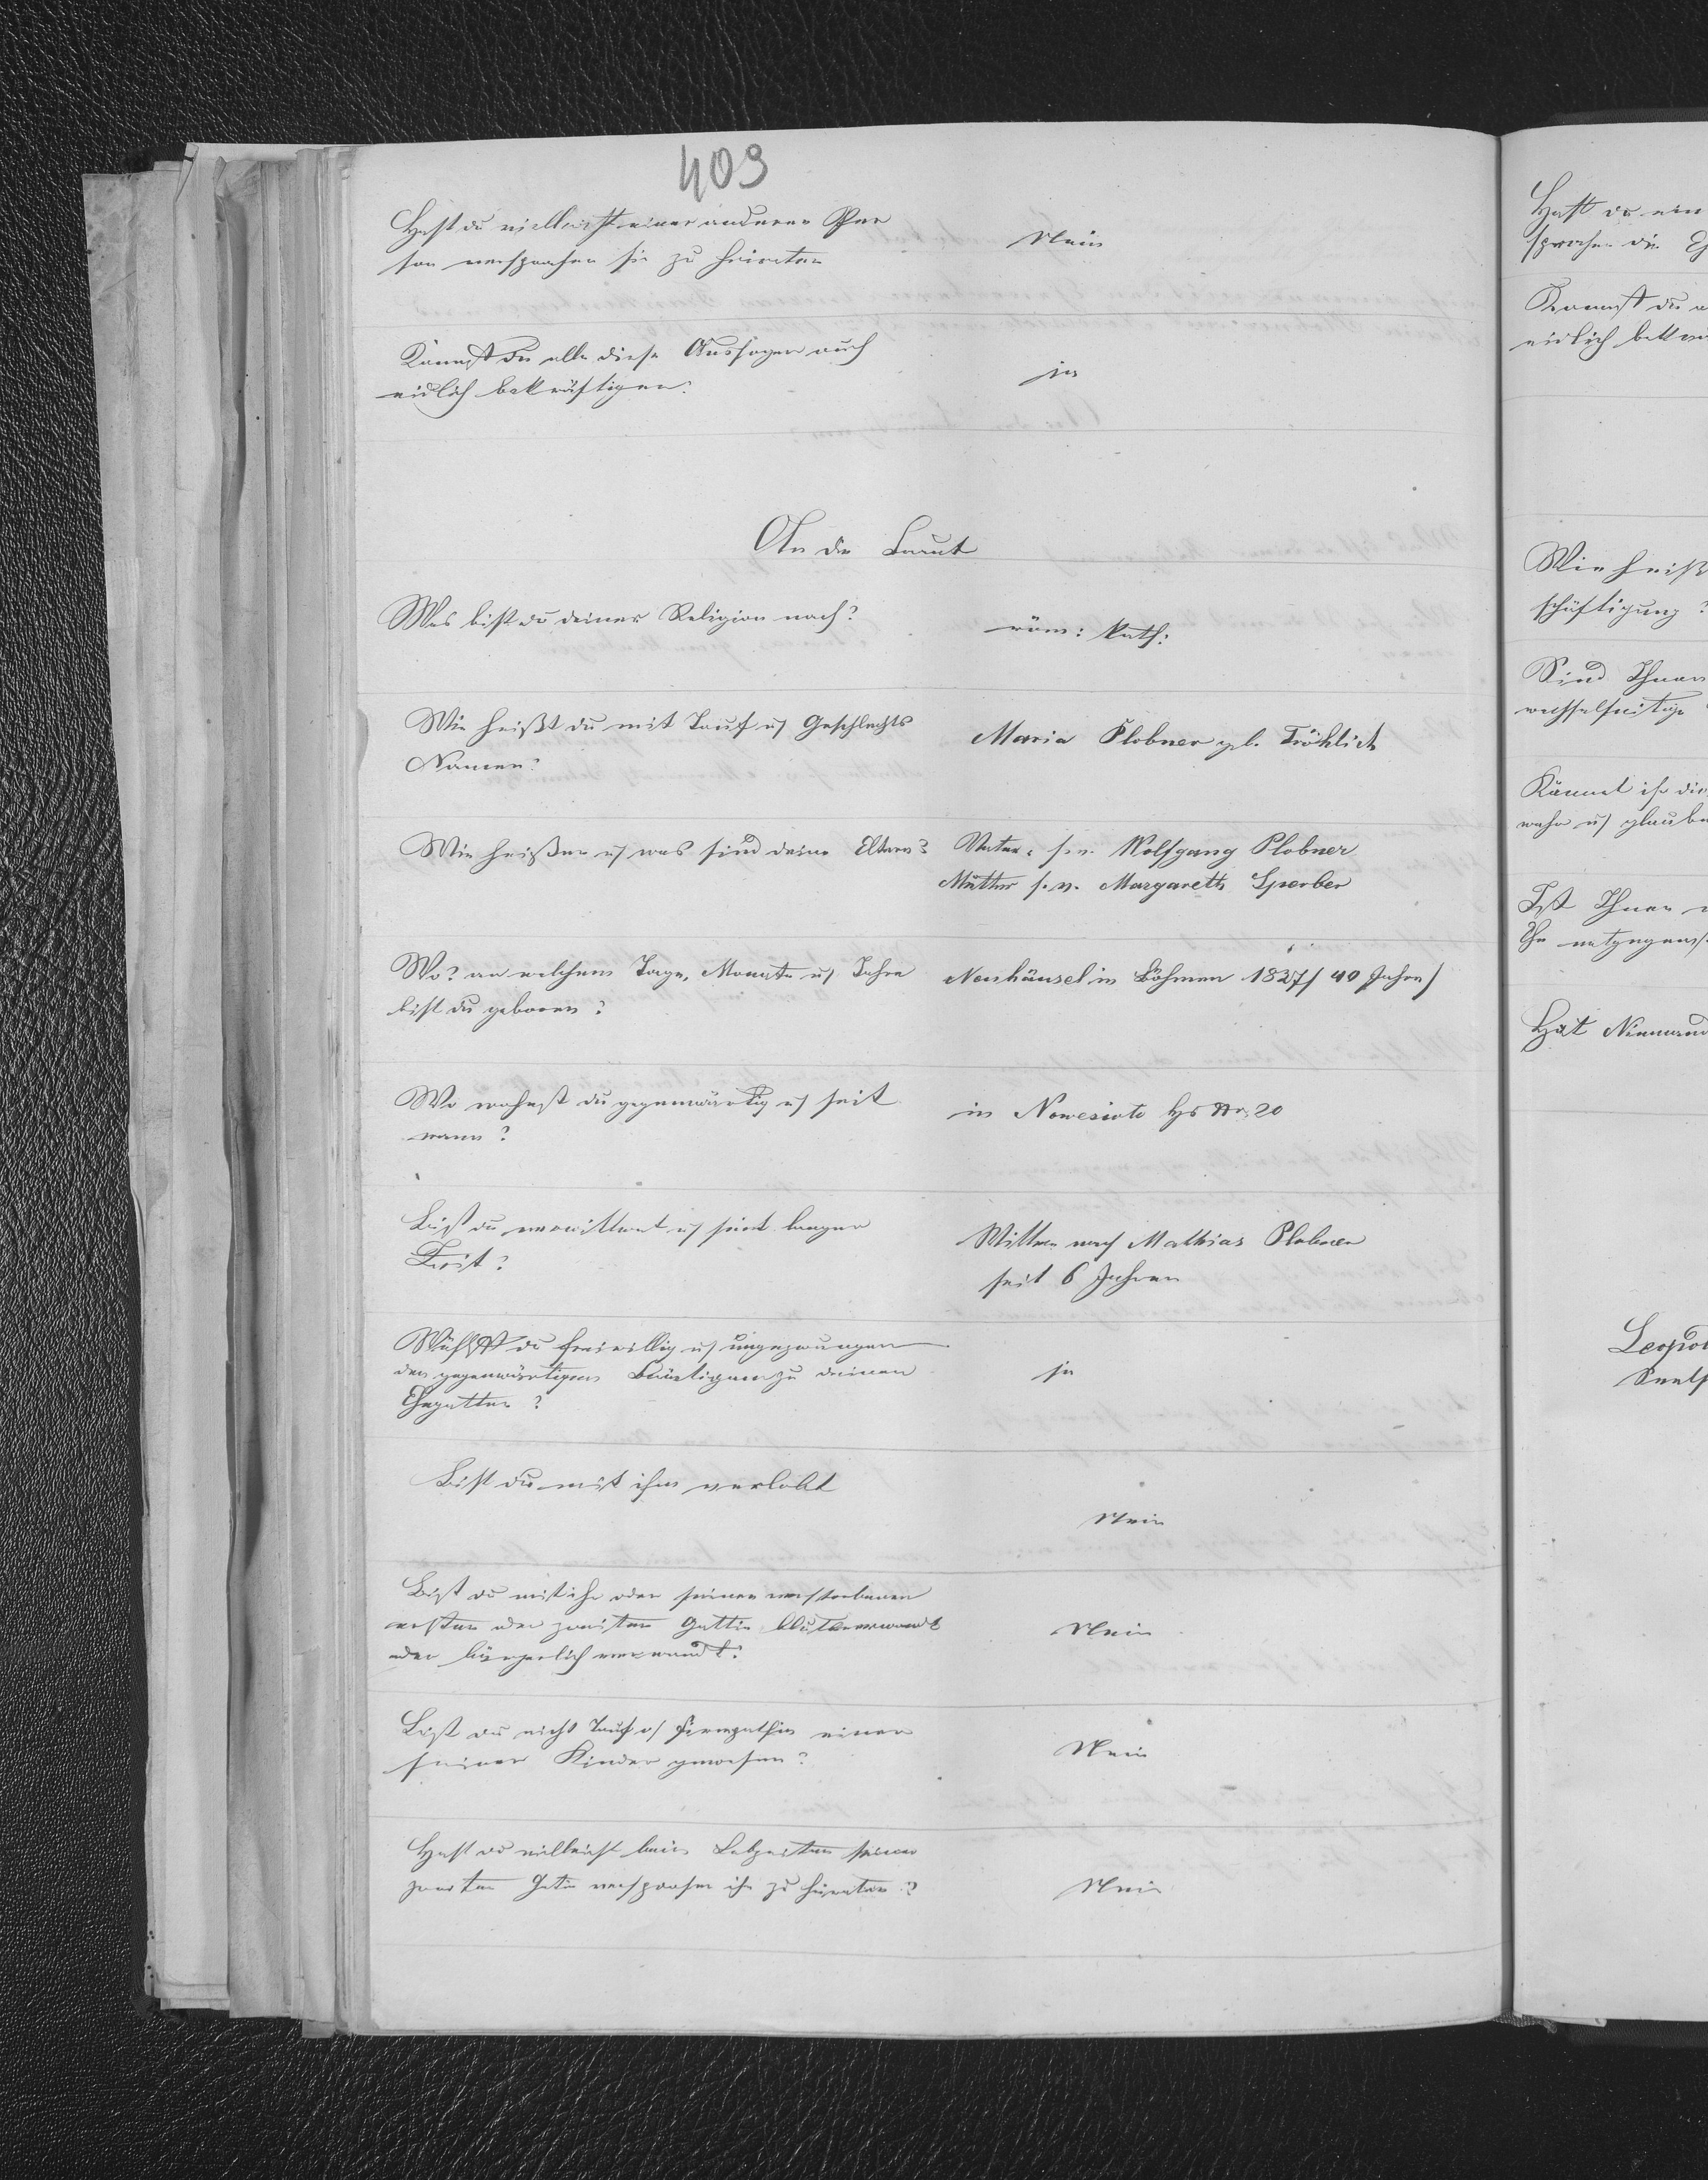 403
Hast du vielleicht einer anderen Per
son versprochen sie zu heiraten
Nein
Kannst du alle diese Aussagen auch
eidlich bekräftigen?
ja
An die Braut
Was bist du deiner Religion nach?
röm: kath:
Wie heißt du mit Tauf u Geschlechts
Namen?
Maria Plobner geb. Fröhlich
Wie heißen u was sind deine Eltern?
Vater: Wolfgang Plobner
Mutter Margareth Sperber
Wo? an welchem Tage, Monate u Jahre
bist du geboren?
Neuhäusel in Böhmen 1827/ 40 Jahre/
Wo wohnst du gegenwärtig u seit
wann?
in Nowesioto Hs Nr. 20
Bist du verwittwet u seit langer
Zeit?
Wittwe nach Mathias Plobner
seit 6 Jahren
Wählst du freiwillig u ungezwungen
den gegenwärtigen Bräutigam zu deinen
Ehegatten?
ja
Bist du mit ihm verlobt
Nein
Bist du mit ihm oder seiner verstorbenen
ersten oder zweiten Gattin blutsverwandt
oder bürgerlich verwandt?
Nein
Bist du nicht Tauf o/ Firmpathin einer
seiner Kinder gewesen?
Nein
Hast du vielleicht beim Lebzeiten seiner
zweiten Gatin versprochen ihn zu heiraten?
Nein
Hast du
sprochen die
Kannst du
eidlich
Wie heiß
schäftigung?
Sind Ihnen
wechselseitige
Könnet ihr die
wahr u glaube
Ist Ihnen
Ehe entgegen
Hat Niemand
Leopol